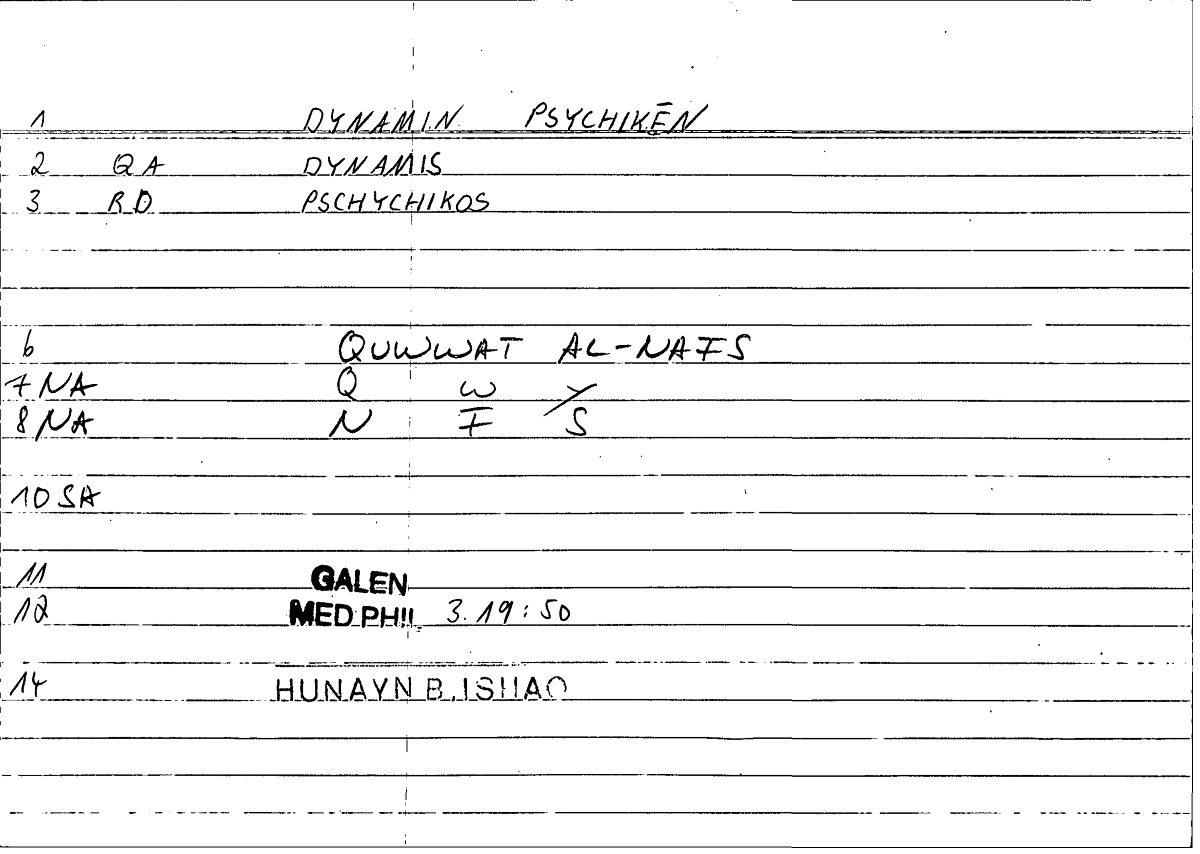 1 DYNAMIN PSYCHIKĒN
2 QA DYNAMIS
3 RD PSCHYCHIKOS
6 QUWWAT AL-NAFS
7 NA Q W Y
8 NA N F S
10 SA
11 GALEN
12 MED PHIL 3.19:50
14 HUNAYN B.ISHAQ